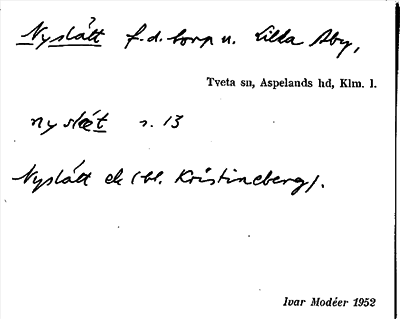 Nyslått f.d. torp u. Lilla Aby,
Tveta sn, Aspelands hd, Klm. l.
nyslåt s. 13
Nyslått ek (bl. Kristineberg).
Ivar Modéer 1952